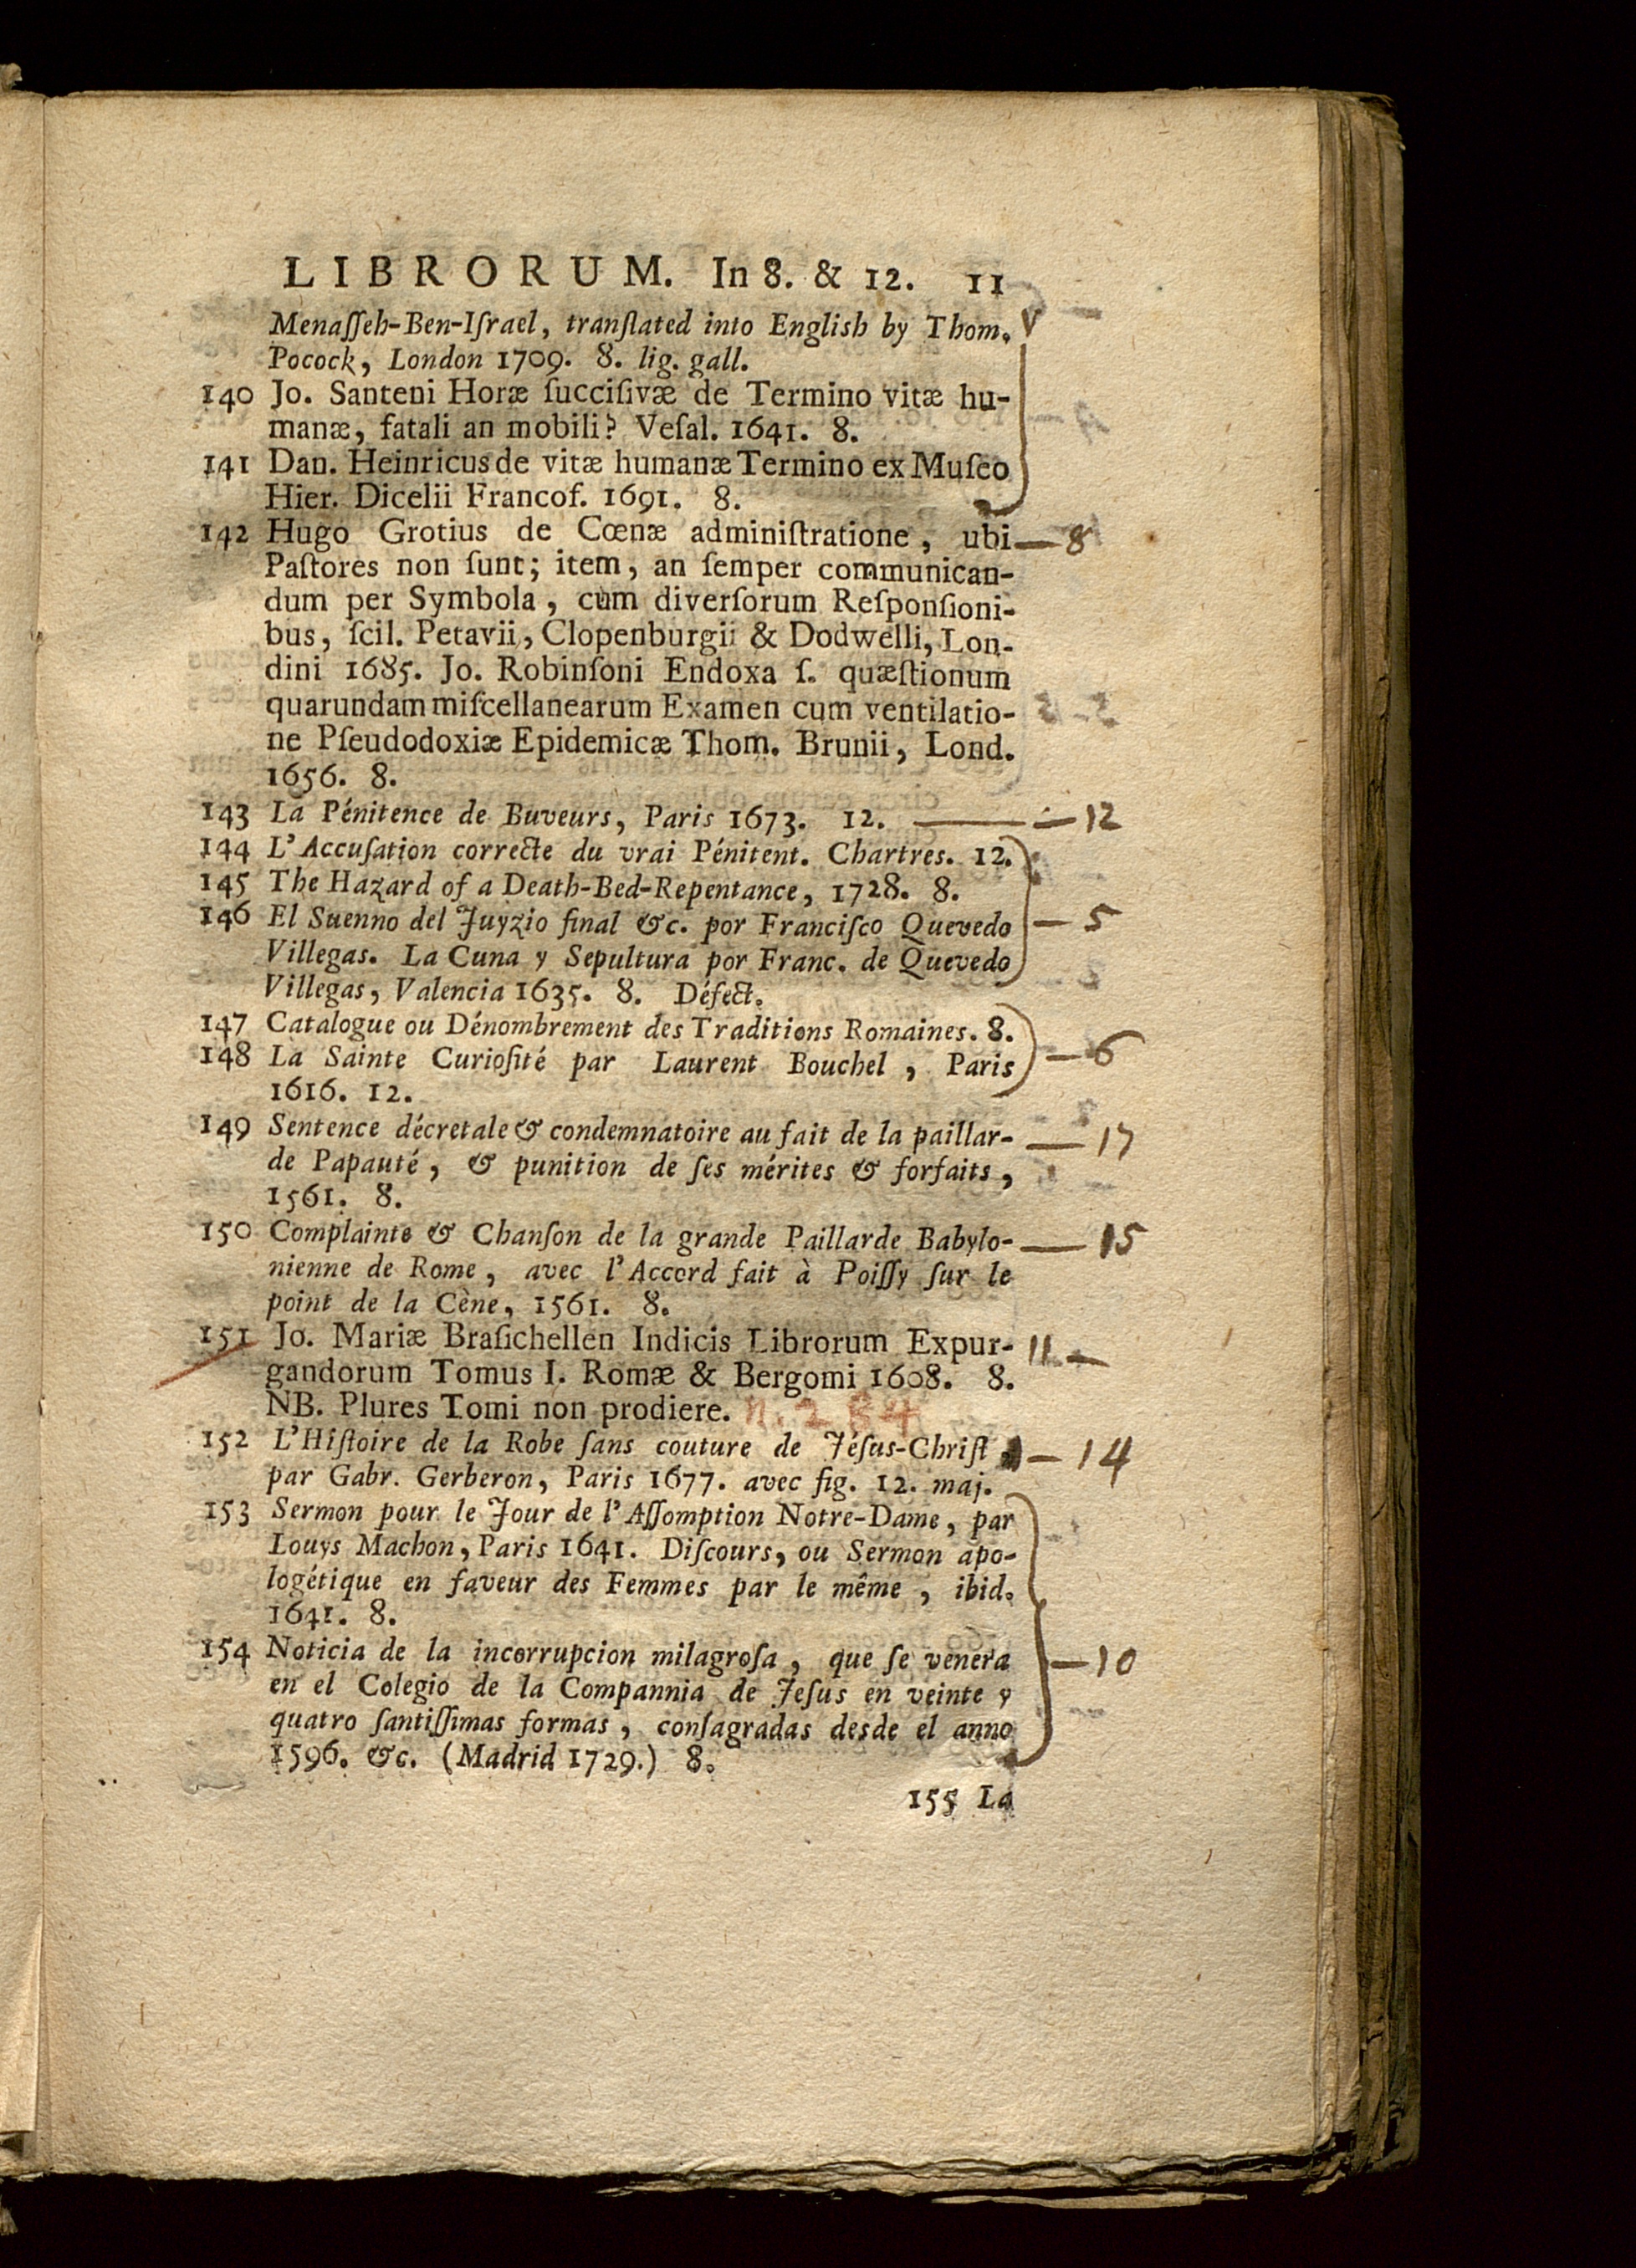 LIBRORUM. In 8. & 12. 11
Menaſſeh-Ben-Iſrael, tranſlated into Engliſh by Thom. V
Pocock, London 1709. 8. lig. gall.
140 Jo. Santeni Horæ ſucciſivæ de Termino vitæ hu-
manæ, fatali an mobili? Veſal. 1641. 8.
141 Dan. Heinricus de vitæ humanæ Termino ex Muſeo
Hier. Dicelii Francof. 1691. 8.
142 Hugo Grotius de Cœnæ adminiſtratione, ubi — 8
Paſtores non ſunt; item, an ſemper communican-
dum per Symbola, cum diverſorum Reſponſioni-
bus, ſcil. Petavii, Clopenburgii & Dodwelli, Lon-
dini 1685. Jo. Robinſoni Endoxa ſ. quæſtionum
quarundam miſcellanearum Examen cum ventilatio-
ne Pſeudodoxiæ Epidemicæ Thom. Brunii, Lond.
1656. 8.
143 La Pénitence de Buveurs, Paris 1673. 12. — 12
144 L'Accuſation correcte du vrai Pénitent. Chartres. 12.
145 The Hazard of a Death-Bed-Repentance, 1728. 8.
146 El Suenno del Juyzio final &c. por Franciſco Quevedo — 5
Villegas. La Cuna y Sepultura por Franc. de Quevedo
Villegas, Valencia 1635. 8. Défect.
147 Catalogue ou Dénombrement des Traditions Romaines. 8.
148 La Sainte Curioſité par Laurent Bouchel, Paris — 6
1616. 12.
149 Sentence décretale & condemnatoire au fait de la paillar- — 17
de Papauté, & punition de ſes mérites & forfaits,
1561. 8.
150 Complainte & Chanſon de la grande Paillarde Babylo- — 15
nienne de Rome, avec l'Accord fait à Poiſſy ſur le
point de la Cène, 1561. 8.
151 Jo. Mariæ Braſichellen Indicis Librorum Expur- 11 —
gandorum Tomus I. Romæ & Bergomi 1608. 8.
NB. Plures Tomi non prodiere. n. 284
152 L'Hiſtoire de la Robe ſans couture de Jéſus-Chriſt — 14
par Gabr. Gerberon, Paris 1677. avec fig. 12. maj.
153 Sermon pour le Jour de l'Aſſomption Notre-Dame, par
Louys Machon, Paris 1641. Diſcours, ou Sermon apo-
logétique en faveur des Femmes par le même, ibid.
1641. 8.
154 Noticia de la incorrupcion milagroſa, que ſe venera — 10
en el Colegio de la Compannia de Jeſus en veinte y
quatro ſantiſſimas formas, conſagradas desde el anno
1596. &c. (Madrid 1729.) 8.
155 La